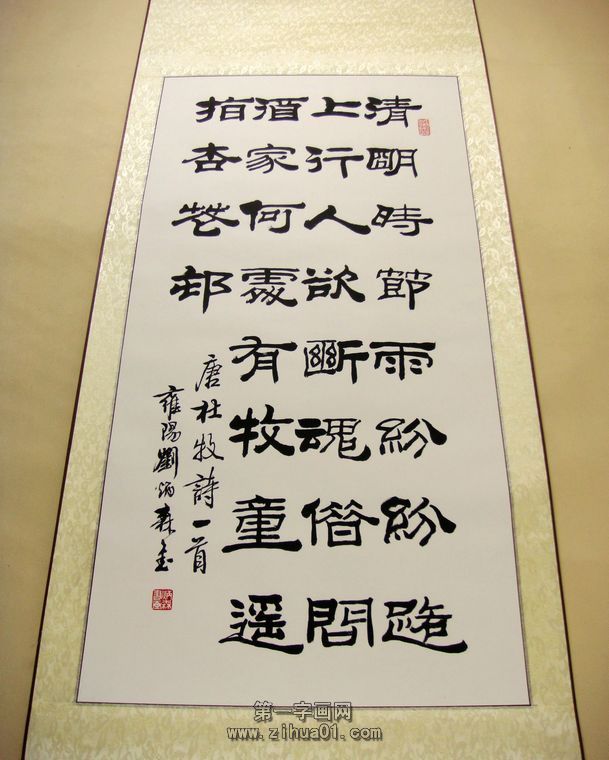 清明時節雨紛紛路
上行人欲斷魂借問
酒家何處有牧童遥
指杏花邨
唐杜牧詩一首
雍陽劉炳森
第一字画网
www.zihua01.com